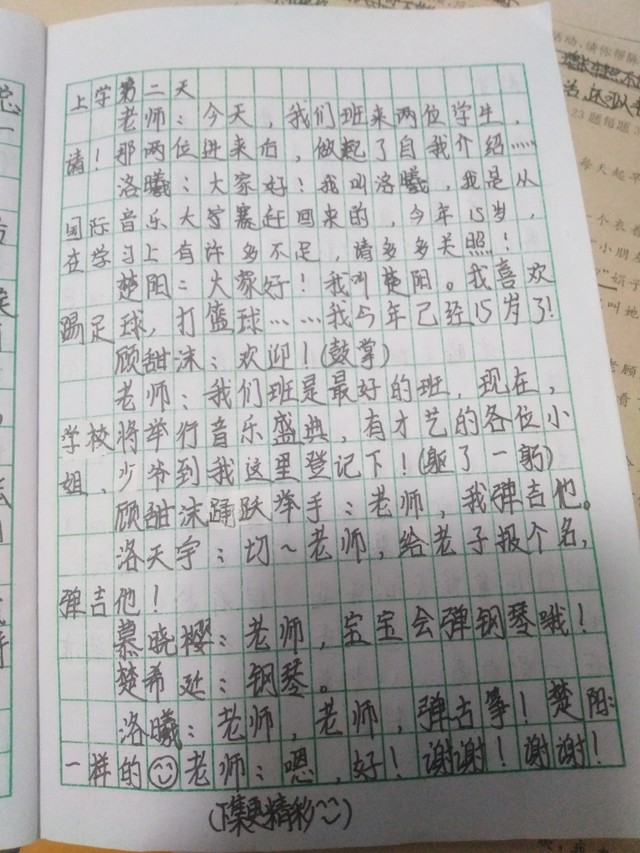 上学第二天
老师：今天，我们班来两位学生，
请！那两位进来后，做起了自我介绍……
洛曦：大家好！我叫洛曦，我是从
国际音乐大赛赶回来的，今年15岁，
在学习上有许多不足，请多多关照！
楚阳：大家好！我叫楚阳。我喜欢
踢足球，打篮球……我今年已经15岁了！
顾甜沫：欢迎！(鼓掌)
老师：我们班是最好的班，现在，
学校将举行音乐盛典，有才艺的各位小
姐、少爷到我这里登记下！(躬了一躬)
顾甜沫踊跃举手：老师，我弹吉他。
洛天宇：切~老师，给老子报个名，
弹吉他！
慕晓樱：老师，宝宝会弹钢琴哦！
楚希延：钢琴。
洛曦：老师，老师，弹古筝！楚阳：
一样的☺老师：嗯，好！谢谢！谢谢！
(下集更精彩~)
活动，请你帮
23题每题
每天起
一个衣着
小朋友
叫她
老顾
看